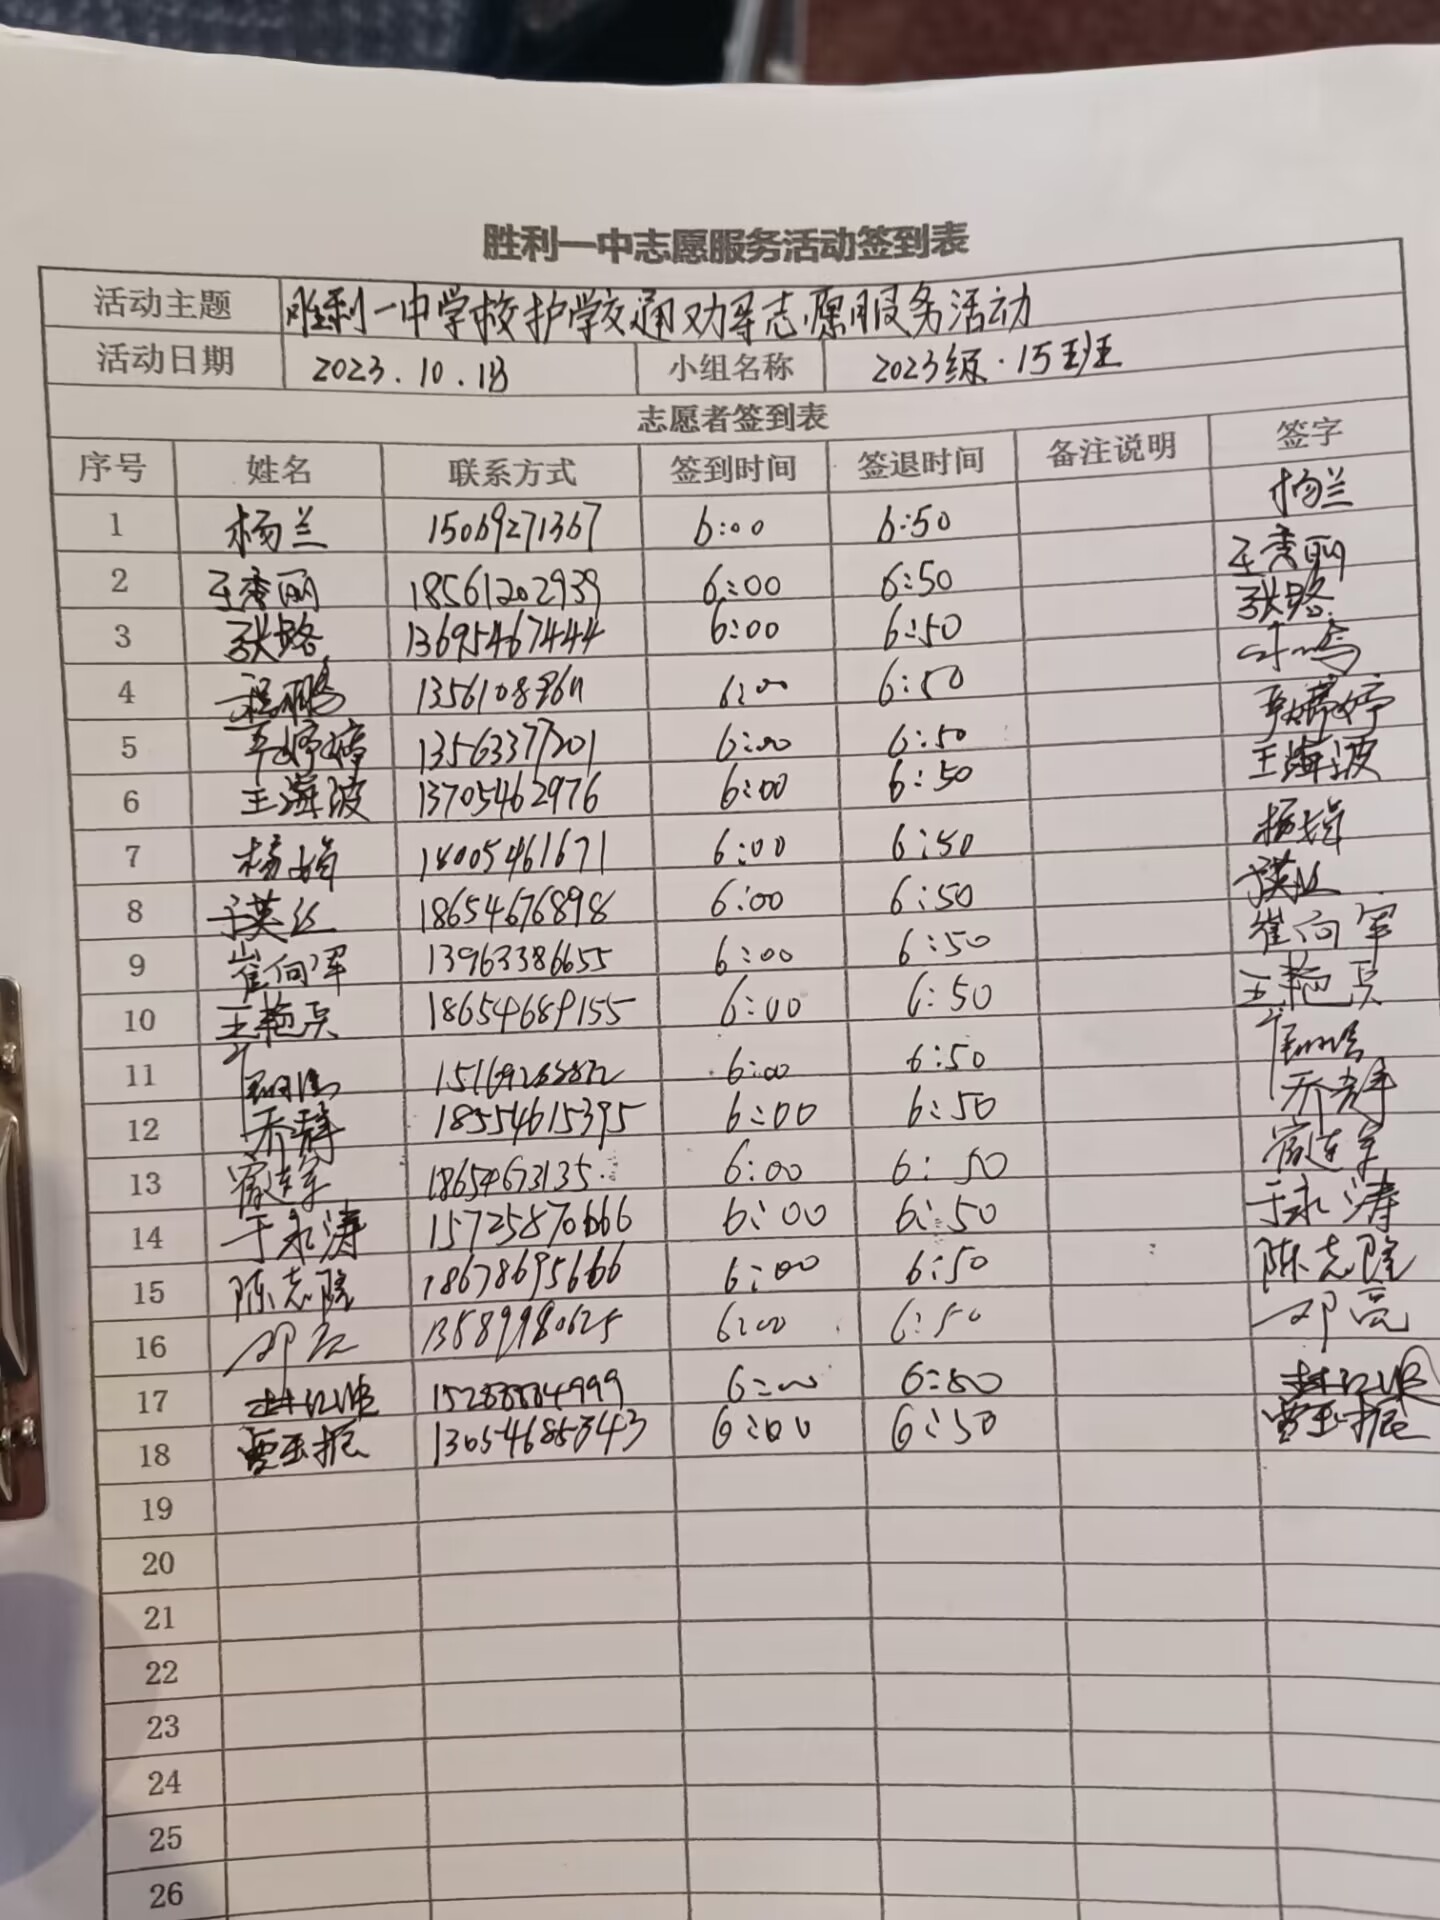 胜利一中志愿服务活动签到表
活动主题 胜利一中学校护学交通劝导志愿服务活动
活动日期 2023.10.18 小组名称 2023级·15班
志愿者签到表
序号 姓名 联系方式 签到时间 签退时间 备注说明 签字
1 杨兰 15069271367 6:00 6:50 杨兰
2 王秀丽 18561202939 6:00 6:50 王秀丽
3 张路 13695467444 6:00 6:50 张路
4 6:00 6:50
5 婷婷 13563377201 6:00 6:50 婷婷
6 王海波 13705462976 6:00 6:50 王海波
7 杨娟 18005461671 6:00 6:50 杨娟
8 18654676898 6:00 6:50
9 崔向军 13963386655 6:00 6:50 崔向军
10 王艳兵 18654689155 6:00 6:50 王艳兵
11 6:00 6:50
12 乔静 18554615395 6:00 6:50 乔静
13 6:00 6:50
14 于永涛 15725870666 6:00 6:50 于永涛
15 陈志隆 18678695666 6:00 6:50 陈志隆
16 邓亮 13589980625 6:00 6:50 邓亮
17 15288884999 6:00 6:50
18 贾玉振 6:00 6:50 贾玉振
19
20
21
22
23
24
25
26